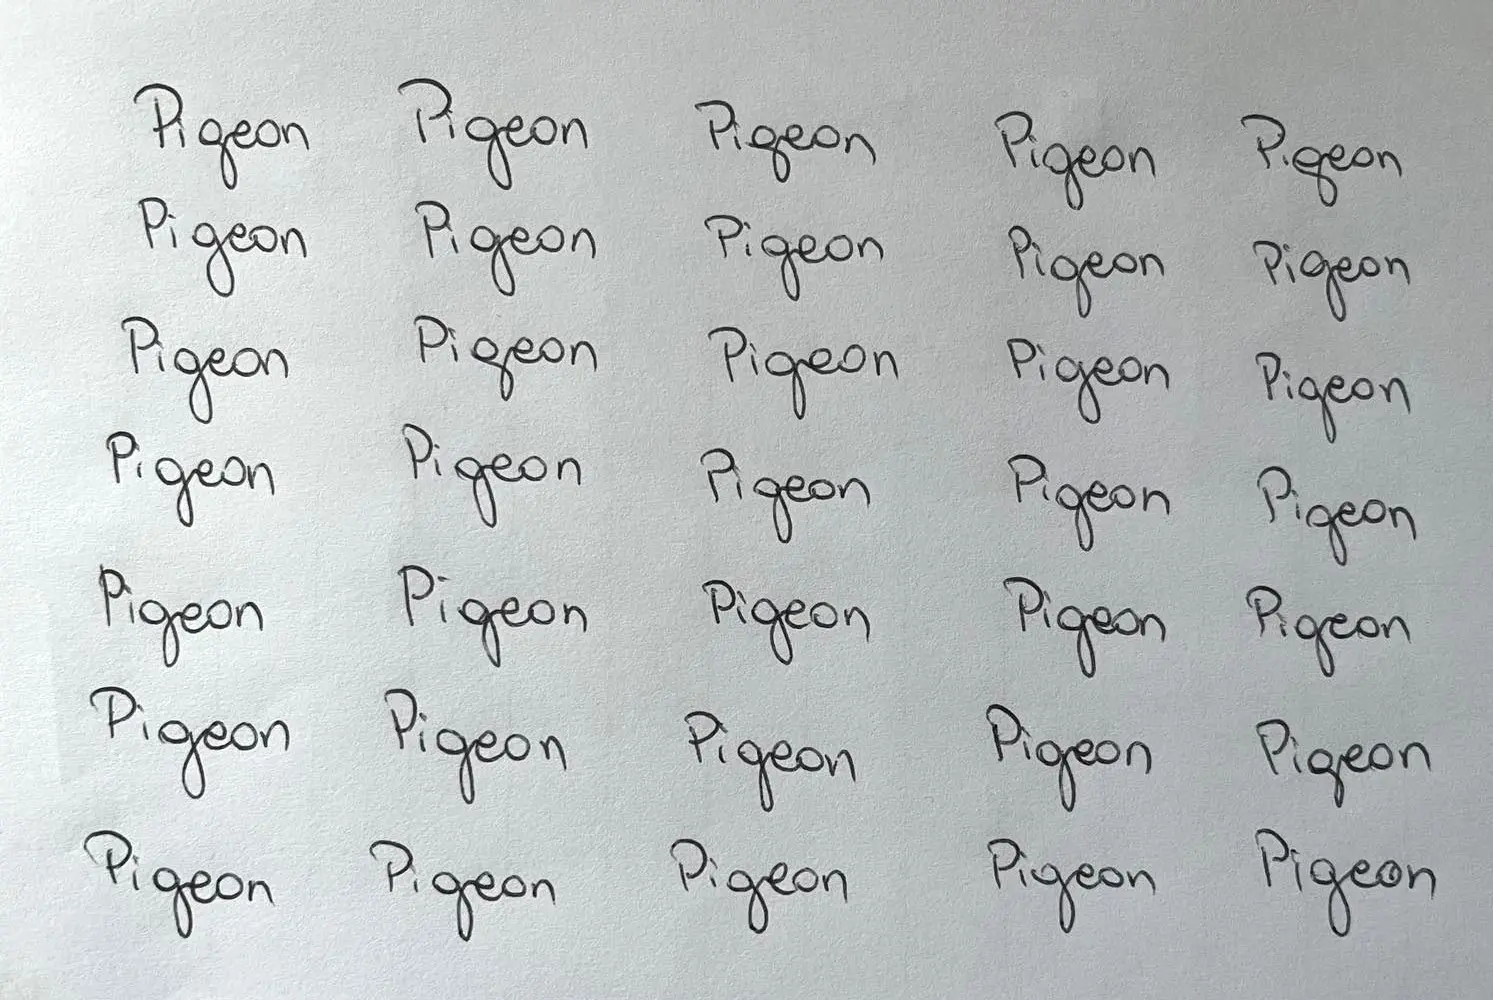 Pigeon Pigeon Pigeon Pigeon Pigeon
Pigeon Pigeon Pigeon Pigeon Pigeon
Pigeon Pigeon Pigeon Pigeon Pigeon
Pigeon Pigeon Pigeon Pigeon Pigeon
Pigeon Pigeon Pigeon Pigeon Pigeon
Pigeon Pigeon Pigeon Pigeon Pigeon
Pigeon Pigeon Pigeon Pigeon Pigeon